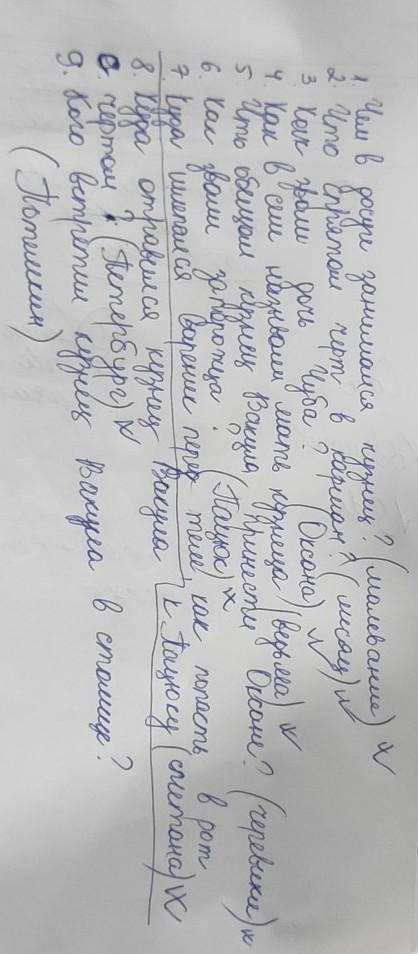 1. Чем в досуг занимался кузнец? (малевание) V
2. Что спрятал черт в карман? (месяц) V
3 Как звали дочь Чуба? (Оксана) V
4. Как в селе называли мать кузнеца (ведьма) V
5 Что обещал кузнец Вакула принести Оксане? (черевики) V
6. Как звали запорожца? (Пацюк) V
7 Куда шмгался вареник перед тем, как попасть в рот
к Пацюку (сметана) V
8. Куда отправился кузнец Вакула
с чертом? (Петербург) V
9. Кого встретил кузнец Вакула в столице?
(Потемкин)